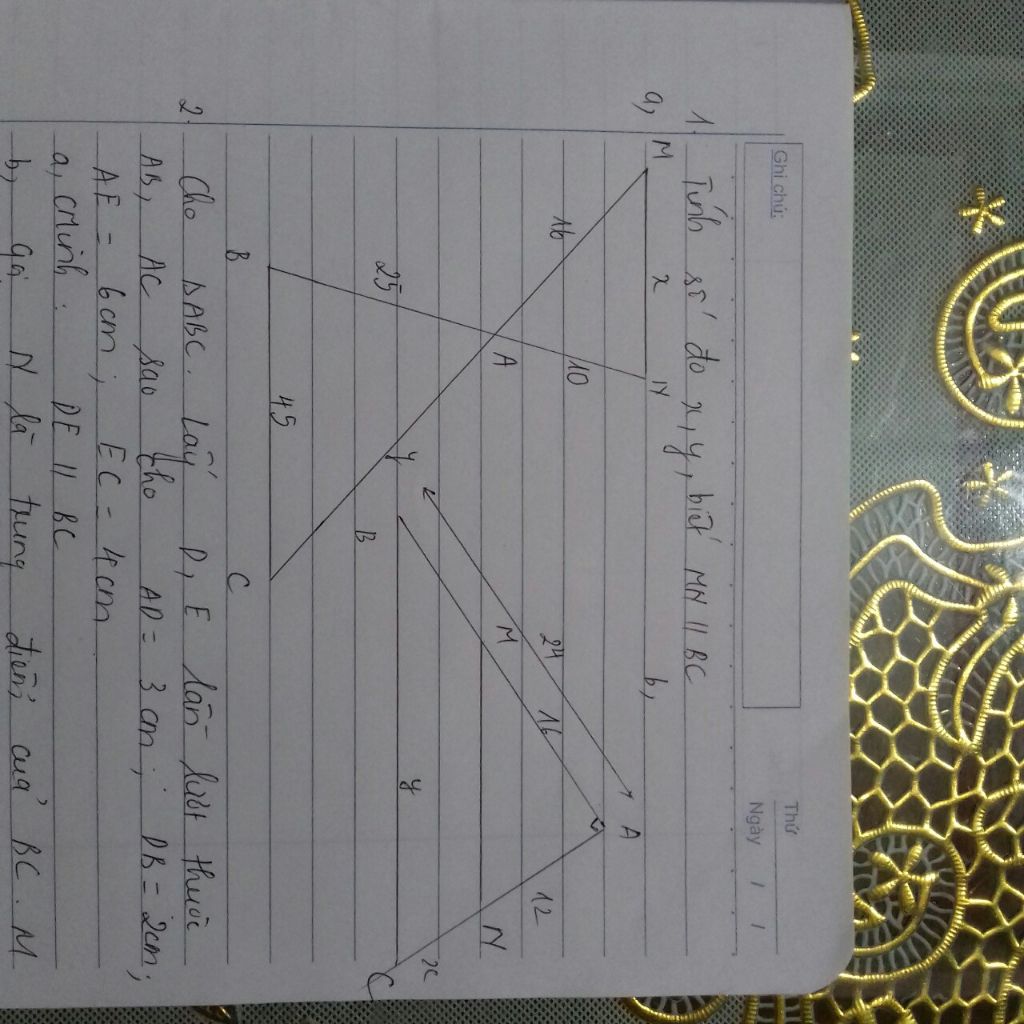 Ghi chú:
Thứ
Ngày / /
1. Tính số đo x, y, biết MN // BC
a, b,
M x N
16 10
A
25 y
B 45 C
A
24 16 12
M N
x
B y C
2. Cho ΔABC. Lấy D, E lần lượt thuộc
AB, AC sao cho AD = 3 cm; DB = 2cm;
AE = 6cm; EC = 4cm.
a, cMinh: DE // BC
b, Gọi N là trung điểm của BC. M